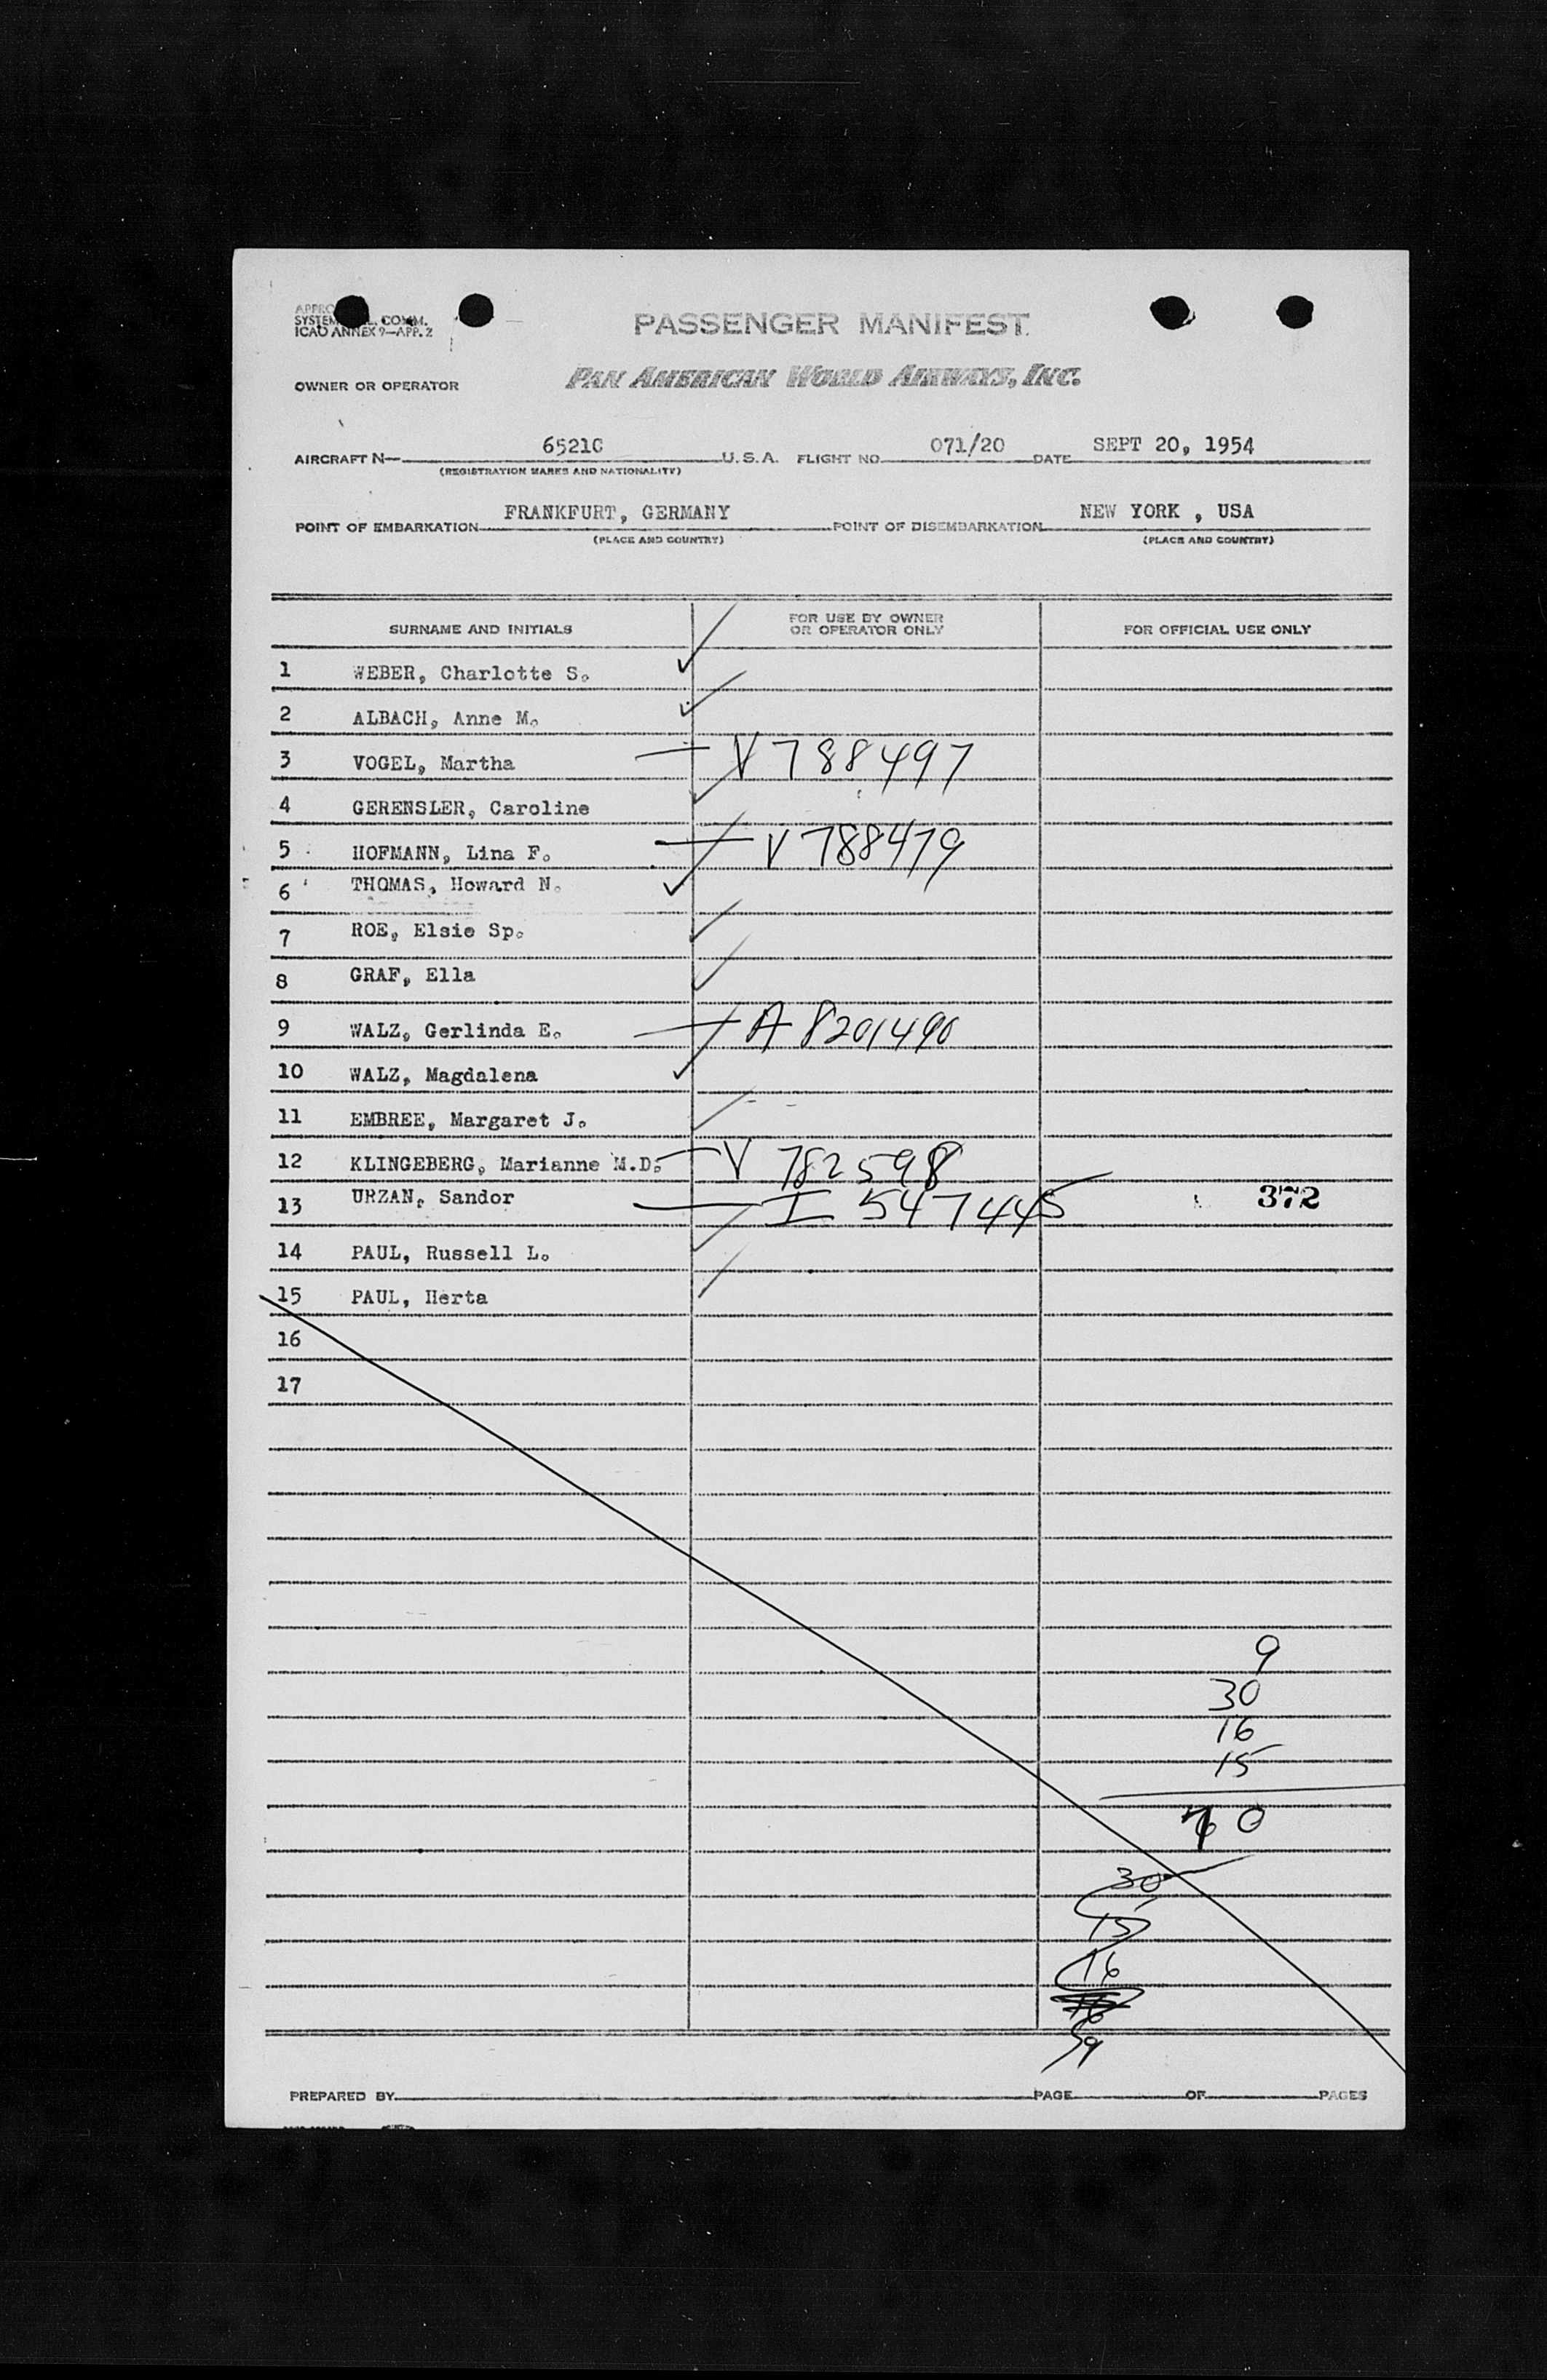 PASSENGER MANIFEST
SYSTEM COMM.
ICAO ANNEX 9—APP. 2
OWNER OR OPERATOR PAN AMERICAN WORLD AIRWAYS, INC.
AIRCRAFT N— 6521C U.S.A. FLIGHT NO 071/20 DATE SEPT 20, 1954
(REGISTRATION MARKS AND NATIONALITY)
POINT OF EMBARKATION FRANKFURT, GERMANY POINT OF DISEMBARKATION NEW YORK , USA
(PLACE AND COUNTRY) (PLACE AND COUNTRY)
SURNAME AND INITIALS FOR USE BY OWNER OR OPERATOR ONLY FOR OFFICIAL USE ONLY
1 WEBER, Charlotte S.
2 ALBACH, Anne M.
3 VOGEL, Martha — V 788497
4 GERENSLER, Caroline
5 HOFMANN, Lina F. — V 788479
6 THOMAS, Howard N.
7 ROE, Elsie Sp.
8 GRAF, Ella
9 WALZ, Gerlinda E. — A 8201490
10 WALZ, Magdalena
11 EMBREE, Margaret J.
12 KLINGEBERG, Marianne M.D. — V 782598
13 URZAN, Sandor — I 547445 372
14 PAUL, Russell L.
15 PAUL, Herta
16
17
9
30
16
15
70
30
15
16
9
PREPARED BY PAGE OF PAGES